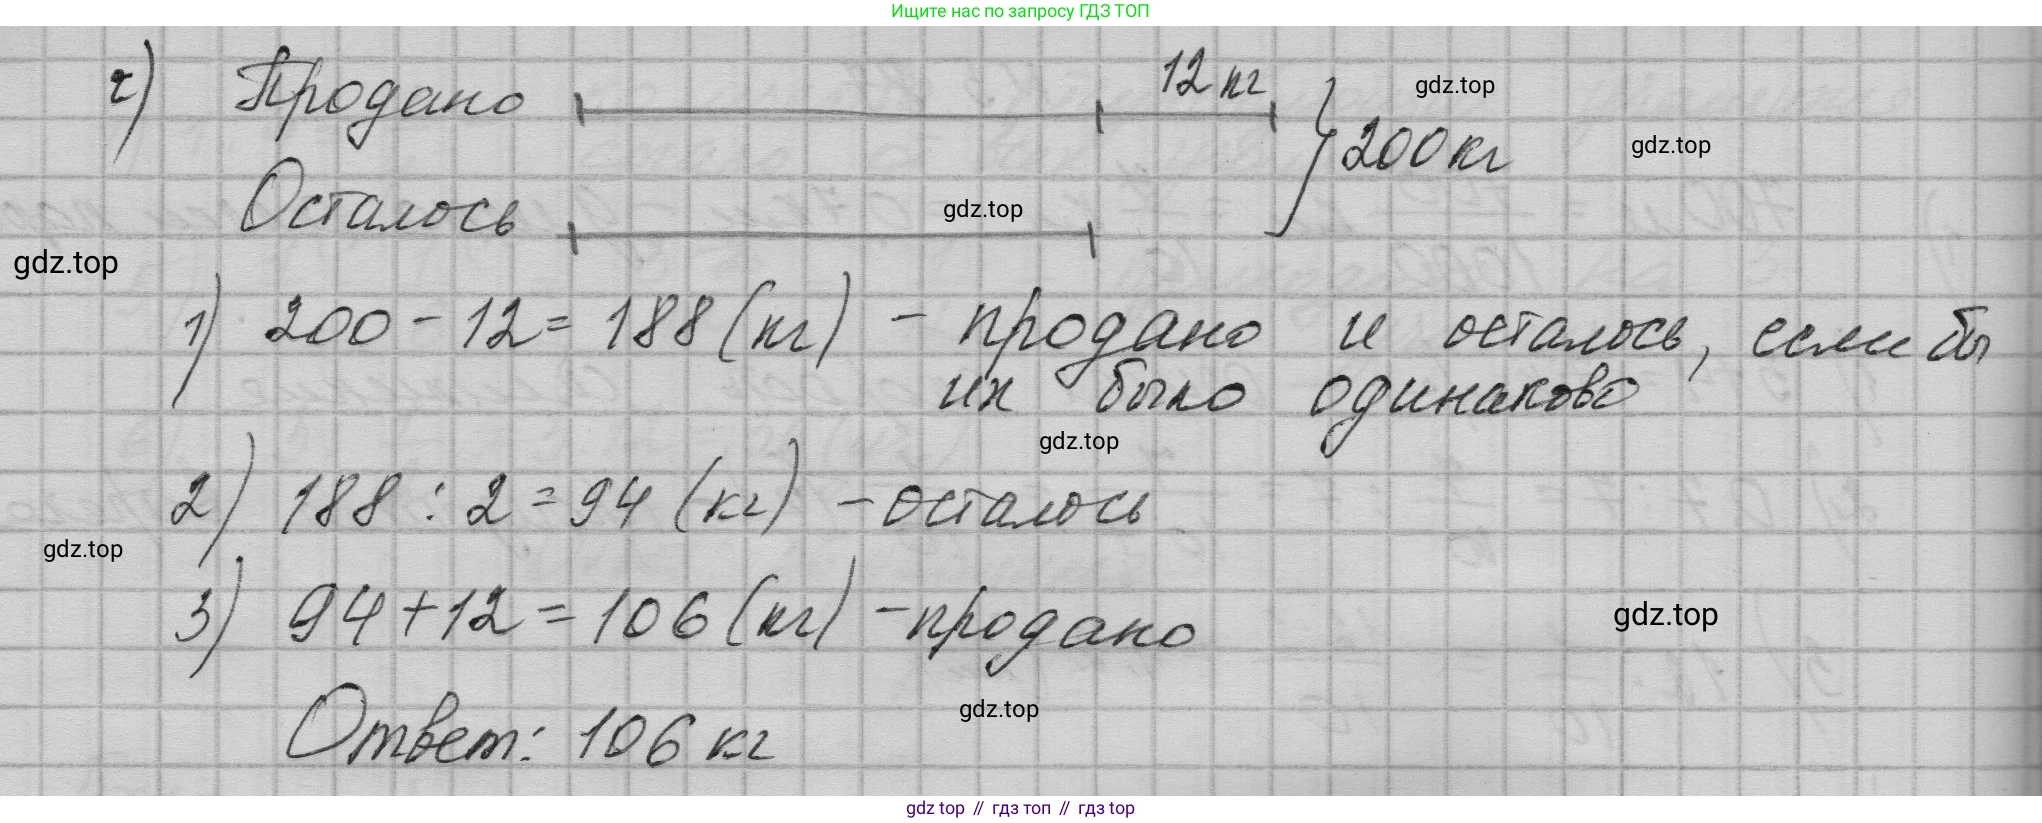 Ищите нас по запросу ГДЗ ТОП
г) Продано 12 кг gdz.top
200 кг gdz.top
Осталось gdz.top
gdz.top
1) 200 - 12 = 188 (кг) - продано и осталось, если бы
их было одинаково
gdz.top
2) 188 : 2 = 94 (кг) - осталось
gdz.top
3) 94 + 12 = 106 (кг) - продано
gdz.top
gdz.top
Ответ: 106 кг
gdz top // гдз топ // гдз top